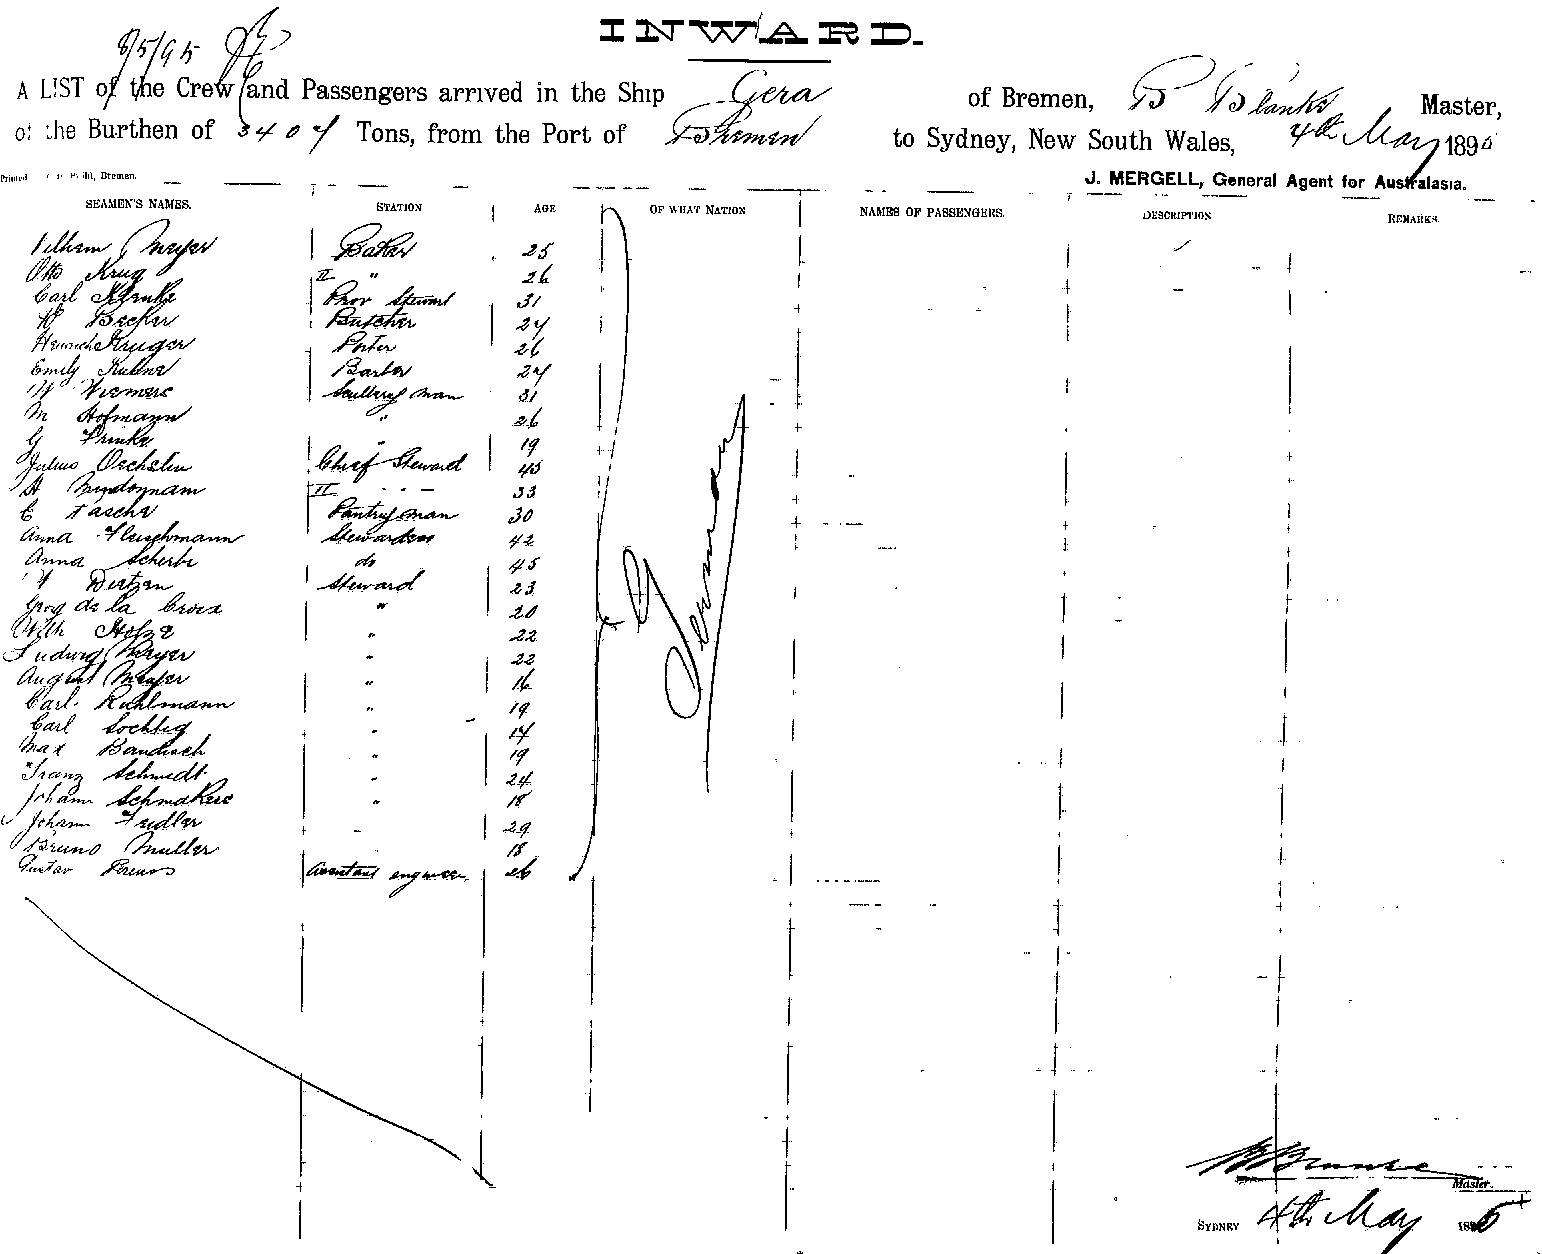 INWARD.
8/5/95
A LIST of the Crew and Passengers arrived in the Ship Gera of Bremen, B Blanke Master,
of the Burthen of 3404 Tons, from the Port of Bremen to Sydney, New South Wales, 4th May 1895
Printed Bremen.
J. MERGELL, General Agent for Australasia.
SEAMEN'S NAMES. STATION AGE OF WHAT NATION NAMES OF PASSENGERS. DESCRIPTION REMARKS.
Wilhelm Meyer Baker 25
Otto Krug II " 26
Carl Prov Steward 31
H Becker Butcher 27
Heinrich Kruger Porter 26
Emily Kuhne Barber 27
W Wiemers Scullery man 31
M Hofmann " 26
G Frinke " 19
Julius Oechslin Chief Steward 45
H II - - - 33
E Tasche Pantry man 30
Anna Fleischmann Stewardess 42
Anna Scherbe do 45
Dietzen Steward 23
Georg de la Croix " 20
Wilh Holze " 22
Ludwig Meyer " 22
August Meyer " 16
Carl Kuhlmann " 19
Carl Sochtig " 17
Max Bandisch " 19
Franz Schmidt " 24
Johann Schmakers " 18
Johann Fiedler " 29
Bruno Muller 18
Gustav Assistant engineer 26
German
B Blanke
Master.
SYDNEY 4th May 1895